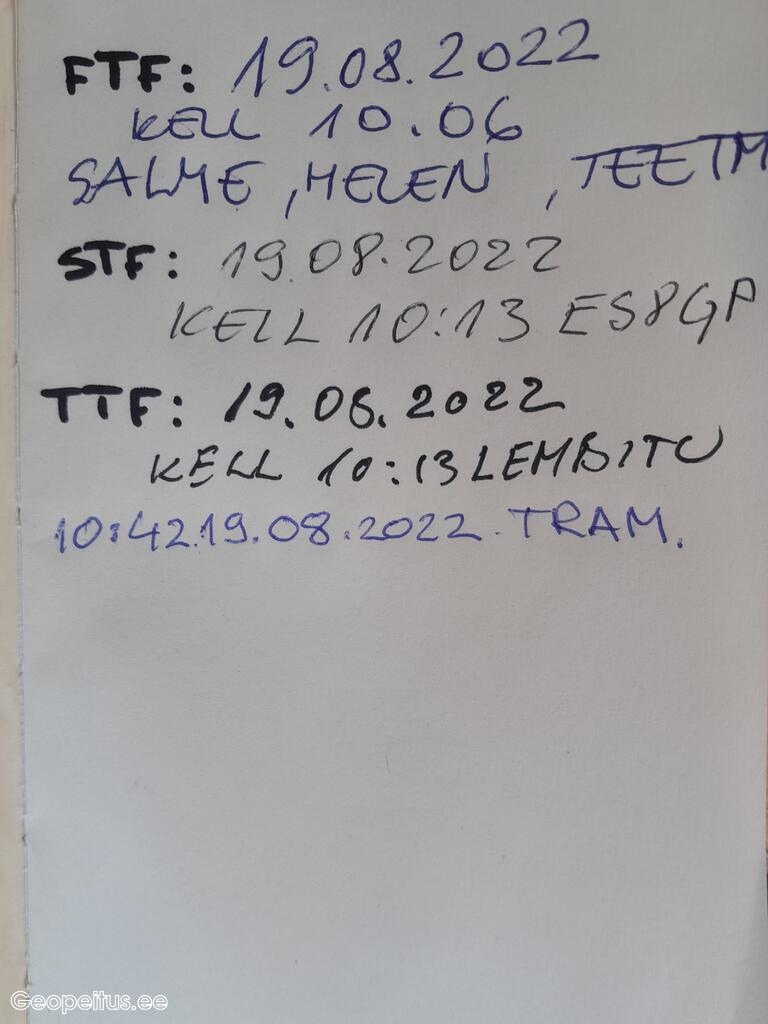 FTF: 19.08.2022
KELL 10.06
SALME, HELEN, TEETM
STF: 19.08.2022
KELL 10:13 ES8GP
TTF: 19.08.2022
KELL 10:13 LEMBITU
10:42.19.08.2022. TRAM.
Geopeitus.ee